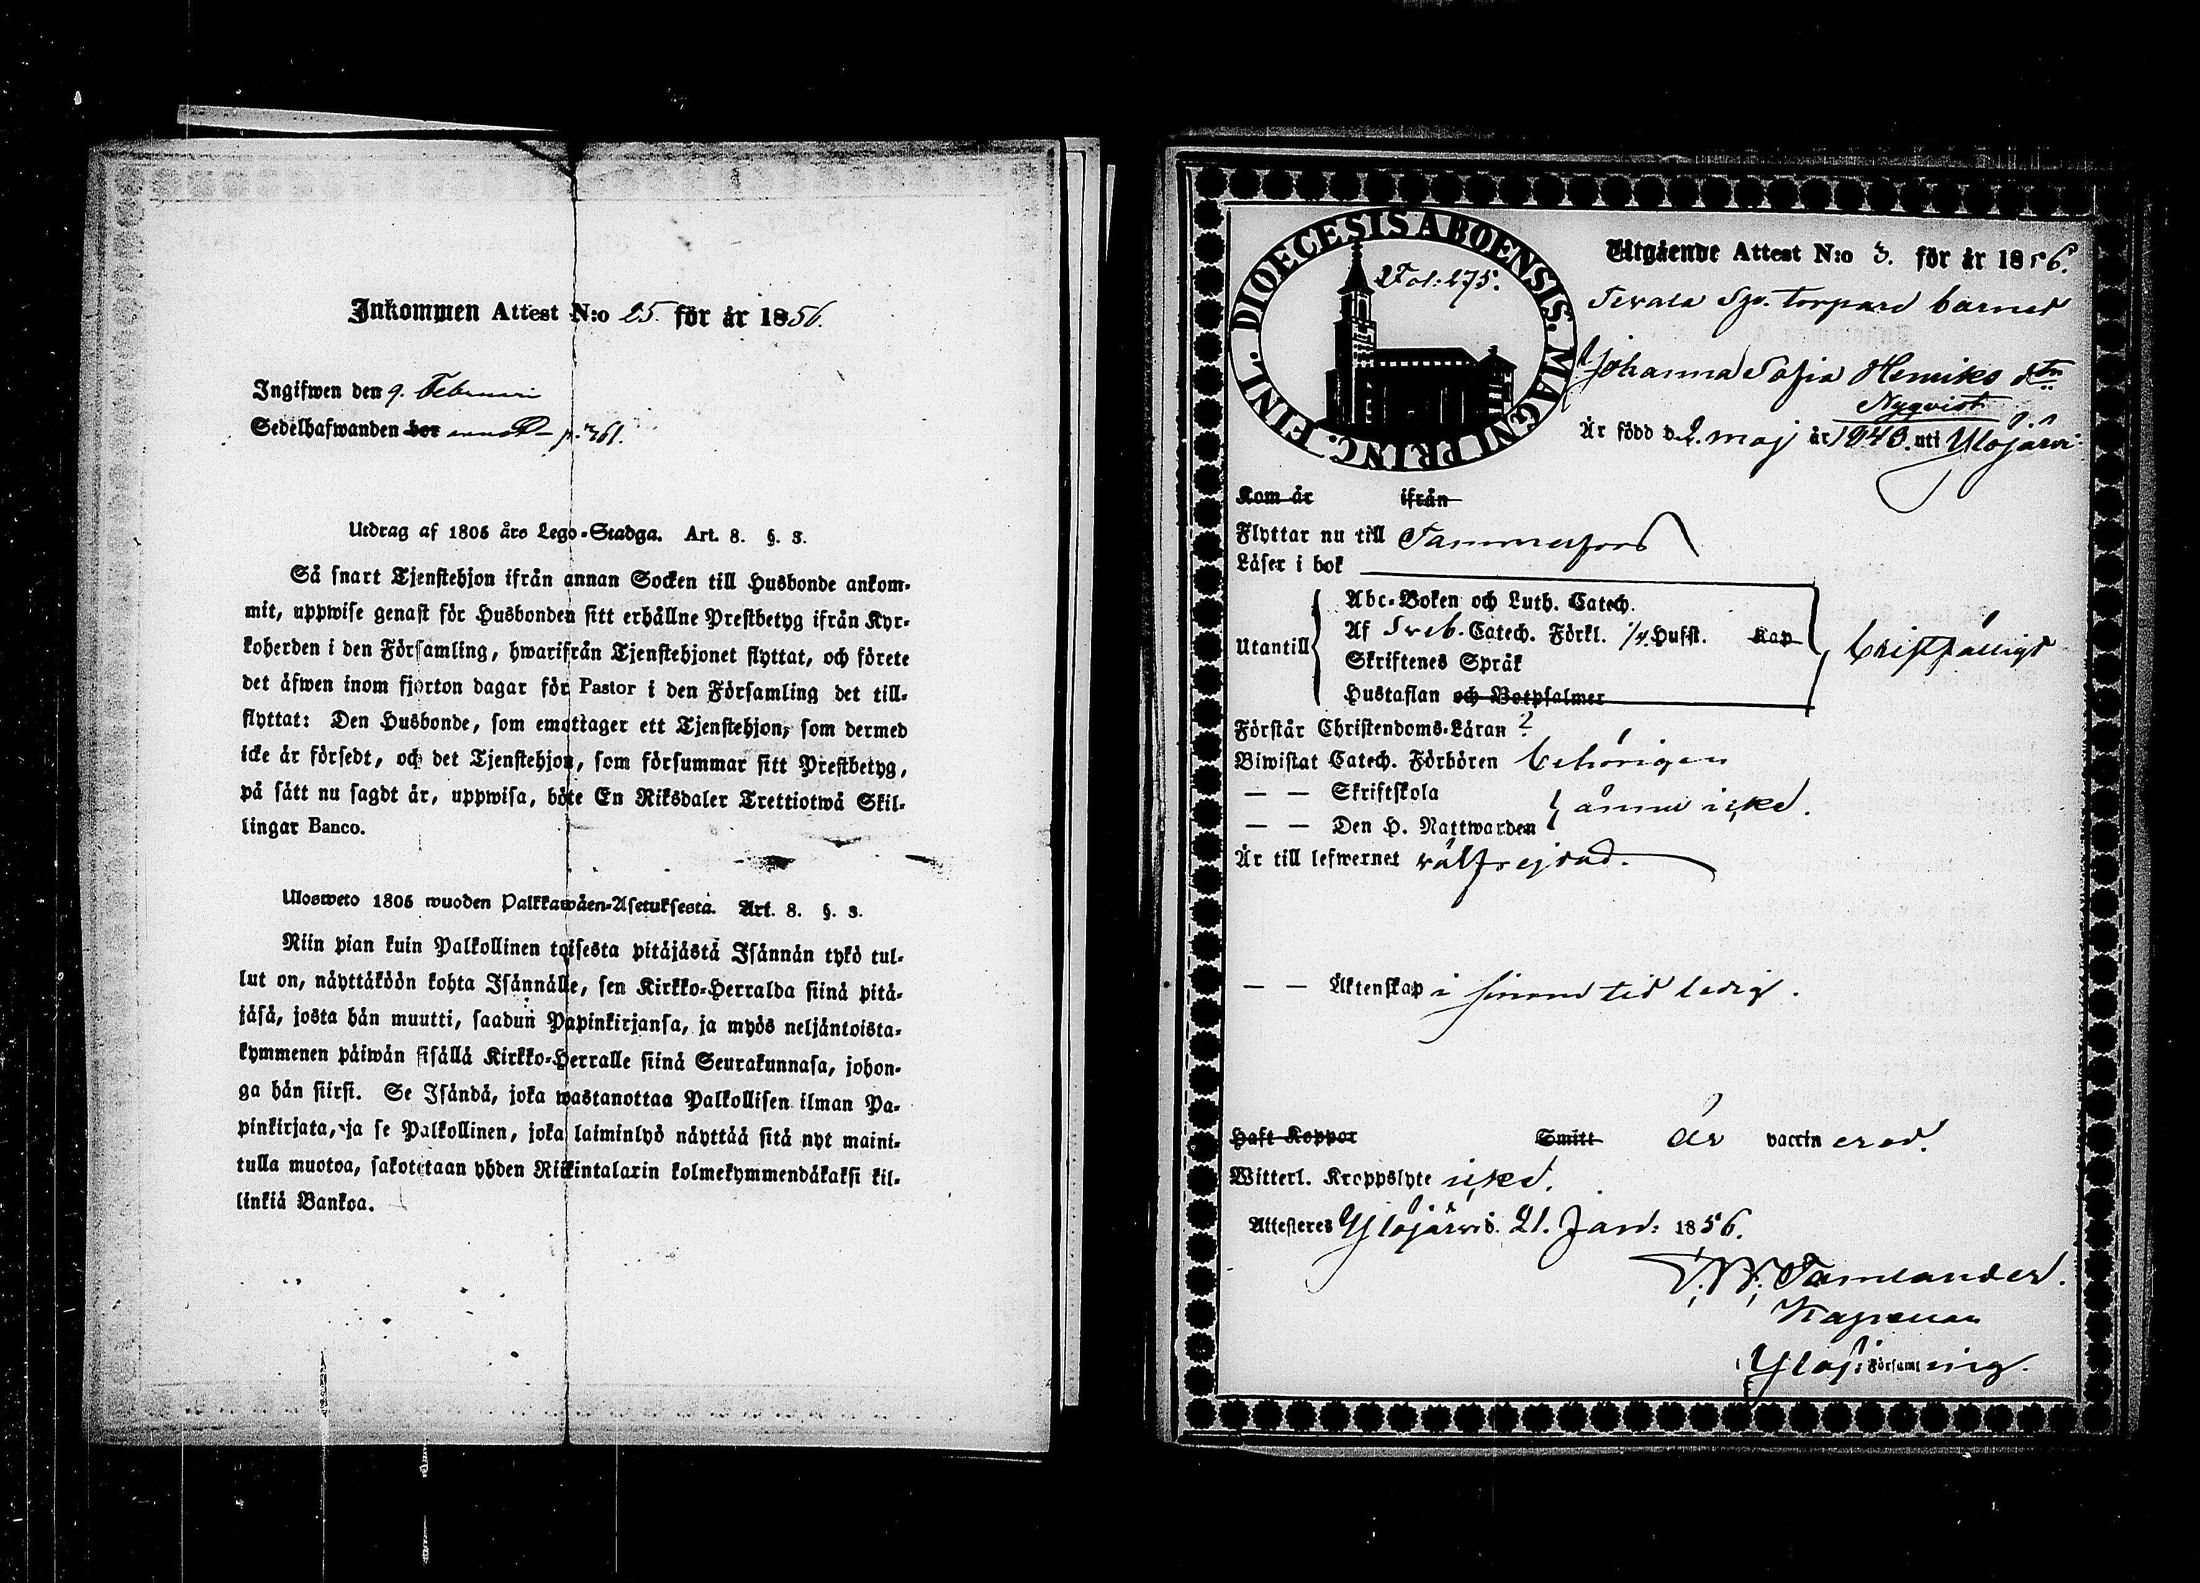 Inkommen Attest N:o 25. för år 1856.
Ingifwen den 9. Februari
Sedelhafwanden bor p. 361.
Utdrag af 1805 års Lego-Stadga. Art. 8. §. 3.
Så snart Tjenstehjon ifrån annan Socken till Husbonde ankom-
mit, uppwise genast för Husbonden sitt erhållne Prestbetyg ifrån Kyr-
koherden i den Församling, hwarifrån Tjenstehjonet flyttat, och förete
det äfwen inom fjorton dagar för Pastor i den Församling det till-
flyttat: Den Husbonde, som emottager ett Tjenstehjon, som dermed
icke är försedt, och det Tjenstehjon, som försummar sitt Prestbetyg,
på sätt nu sagdt är, uppwisa, böte En Riksdaler Trettiotwå Skil-
lingar Banco.
Ulosweto 1805 wuoden Palkkawäen-Asetuksesta. Art. 8. §. 3.
Niin pian kuin Palkollinen toisesta pitäjästä Isännän tykö tul-
lut on, näyttäköön kohta Isännälle, sen Kirkko-Herralda siinä pitä-
jäsä, josta hän muutti, saadun Papinkirjansa, ja myös neljäntoista-
kymmenen päiwän sisällä Kirkko-Herralle siinä Seurakunnasa, johon-
ga hän siirsi. Se Isändä, joka wastanottaa Palkollisen ilman Pa-
pinkirjata, ja se Palkollinen, joka laiminlyö näyttää sitä nyt maini-
tulla muotoa, sakotetaan yhden Riikintalarin kolmekymmendäkaksi kil-
linkiä Bankoa.
DIOECESIS ABOENSIS. MAGNI PRINC. FINL.
Fol: 275.
Utgående Attest N:o 3. för år 1856.
torpare barnet
Johanna Sofia Henriks dtr
Nyqvist
Är född d. 2. maj år 1840. uti Ylöjärvi
Kom år ifrån
Flyttar nu till Tammerfors
Läser i bok
Utantill
Abc-Boken och Luth. Catech.
Af Sveb. Catech. Förkl. 1/4. Hufst. Kap
Skriftenes Språk
Hustaflan och Botpsalmer
bristfälligt
Förstår Christendoms-Läran ?
Biwistat Catech. Förhören behörigen
— — Skriftskola
— — Den H. Nattwarden
ännu icke.
Är till lefwernet välfrejdad.
— — Äktenskap i sinom tid ledig.
Haft Koppor Smitt är vaccin erad.
Witterl. Kroppslyte icke.
Attesteres Ylöjärvi d. 21. Jan: 1856.
Tamelander.
Kapellan
i Ylöj: Församl ing.